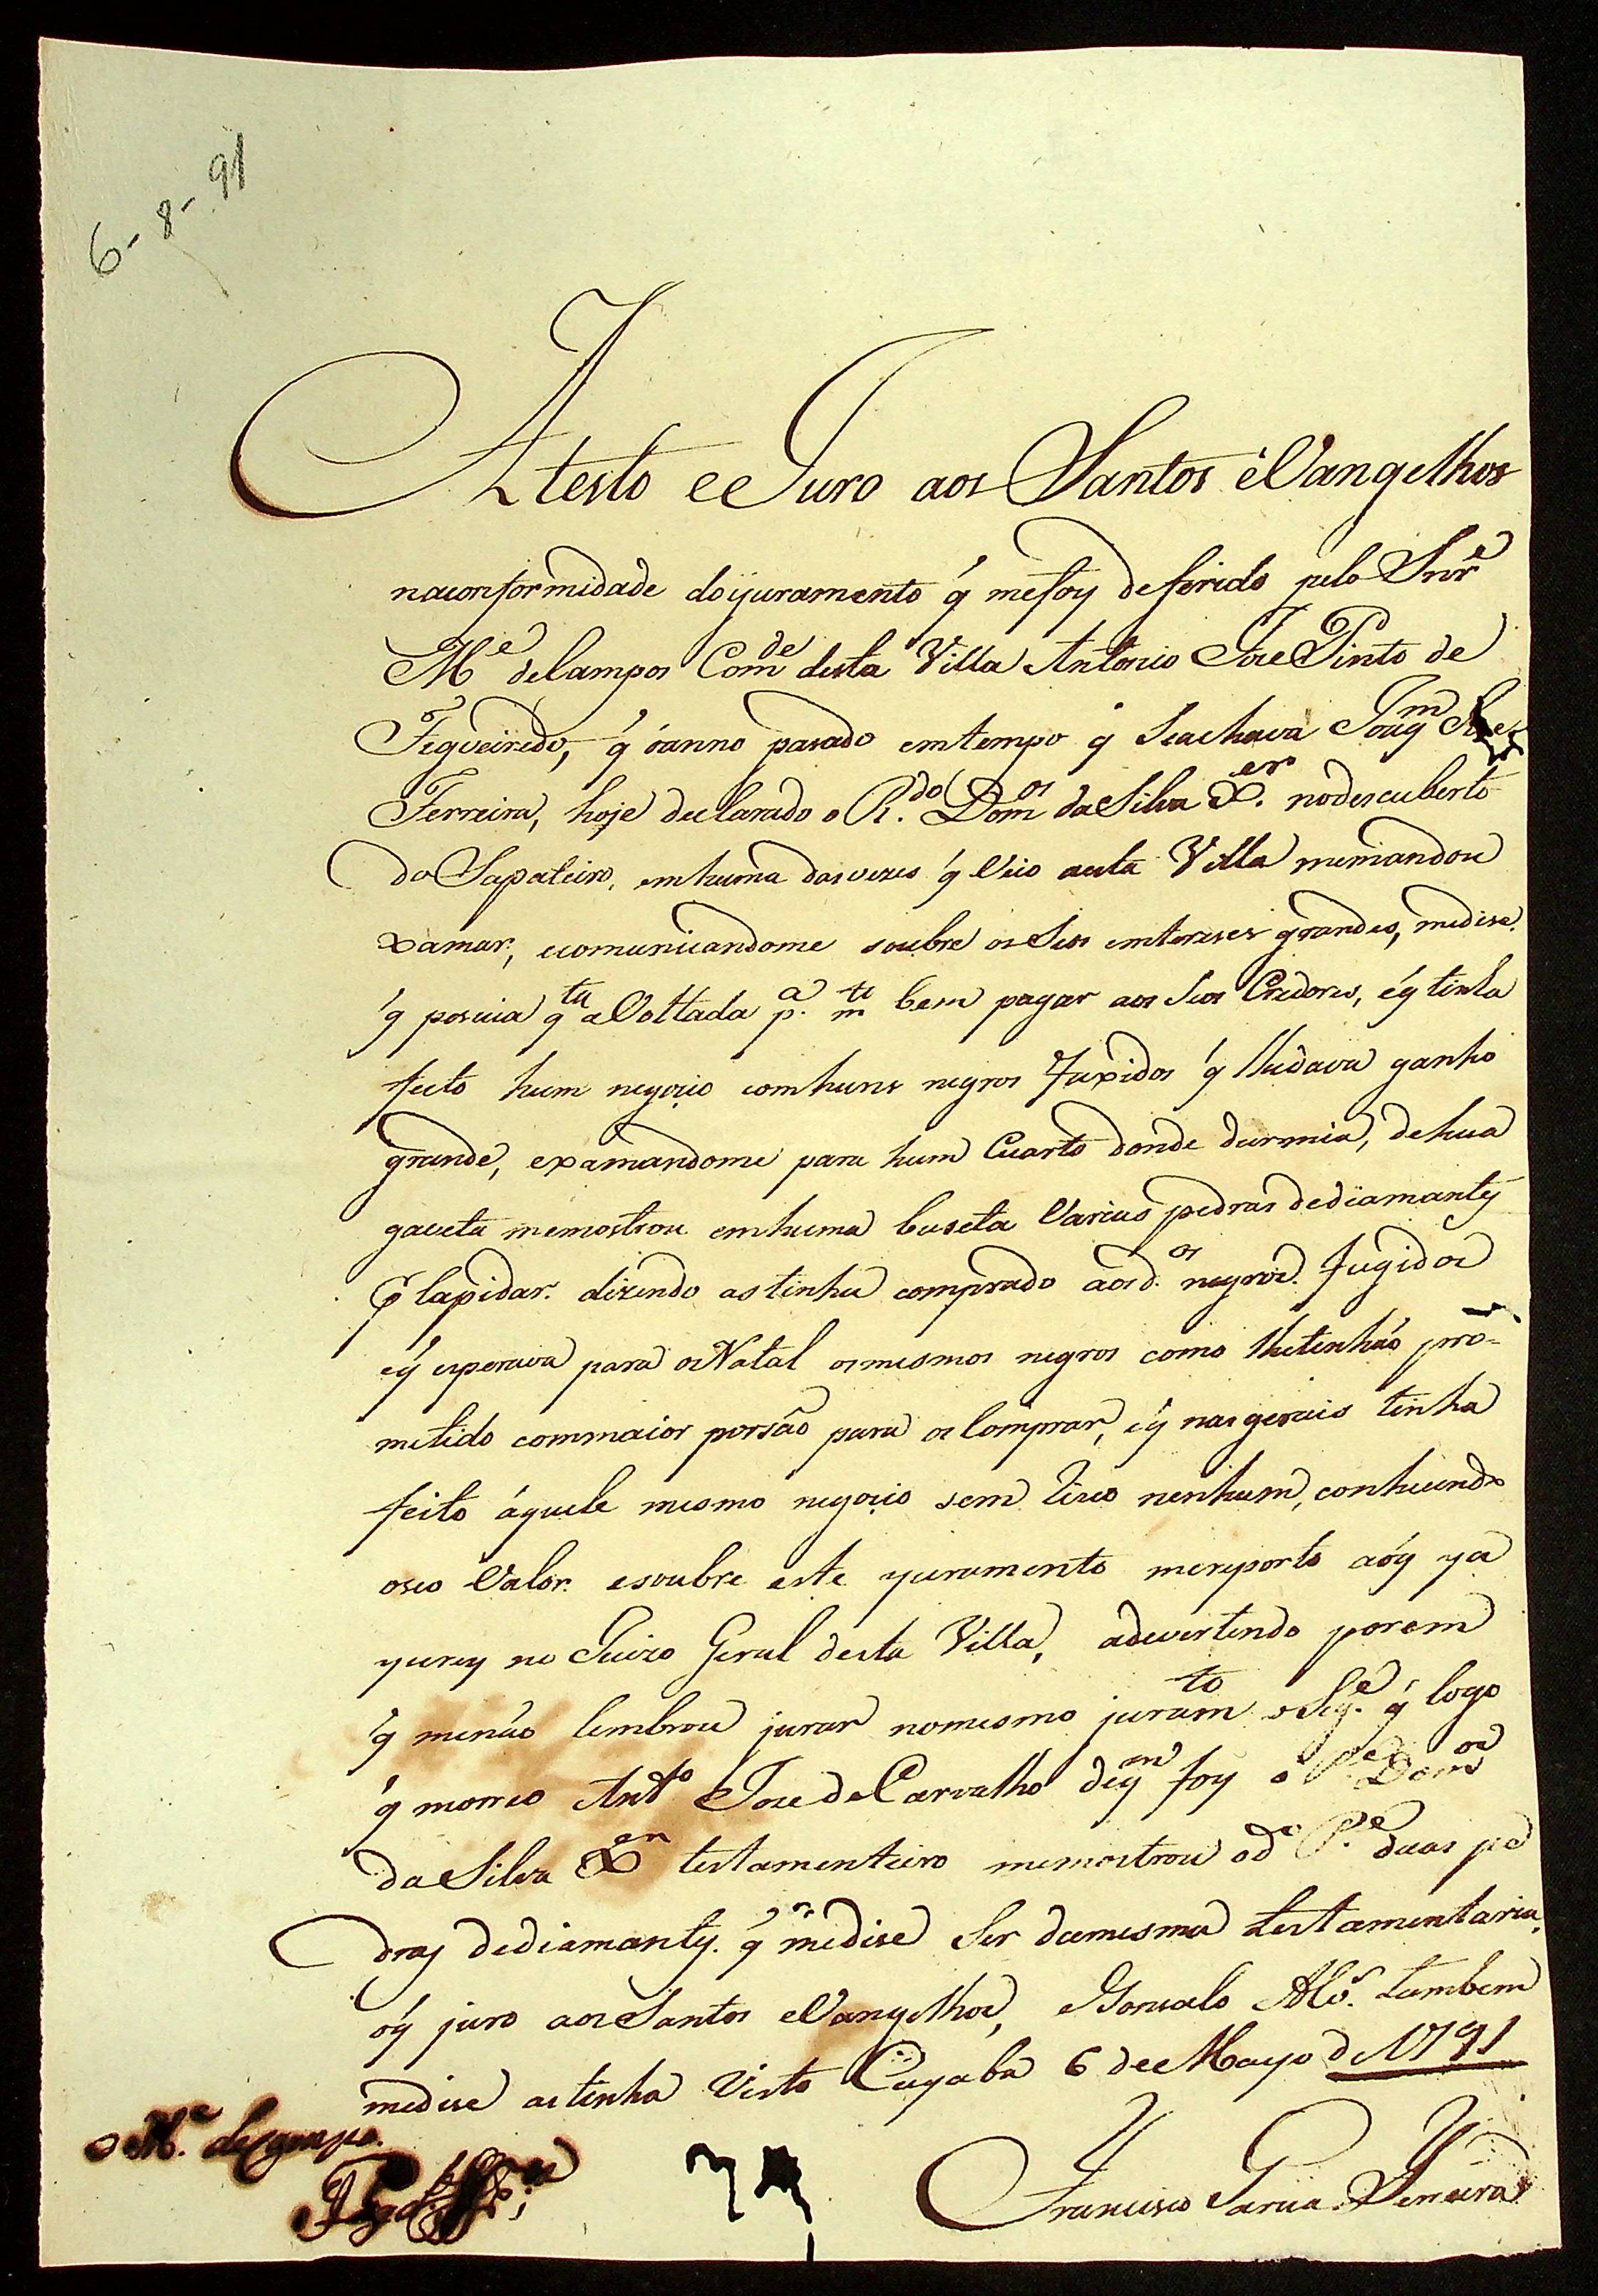 6-8-91
Atesto e e Juro aos Santos èVangelhos
naconformidade dojuramento q̃ mefoy deferido pelo Snr̃e
Me deCampos Comde desta Villa Antonio Joze Pinto de
Figueïredo, q̃ óanno pasado emtempo q̃ Seachava Joaqm Joze
Ferreira, hoje declarado o R.do Domos daSilva X.er nodescuberto
do Sapateiro, emhuma dasvezes q̃ Veio aesta Villa memandou
xamar, ecomunicandome soubre os Seos emtereses grandes, medise
q̃ posuia qta aVoltada p.a mto bem pagar aos Seos Credores, éq̃ tinha
feito hum negoçio comhuns negros Fuxidos q̃ lhedava ganho
grande, examandome para hum Cuarto donde durmia, dehua
gaveta memostrou emhuma buseta Varias pedras dediamantes
p̃ lapidar. dizendo astinha comprado aosd.os negros Fugidos
eq̃ esperava para oNatal osmesmos negros como lhetinhaõ pro=
metido commaior porsaõ para os Comprar, éq̃ nasgerais tinha
feito áquele mesmo negoçio sem Risco nenhum, conhecendo
oseo Valor. esoubre este yuramento mereporto aóq̃ ya
yurey no Juizo Geral desta Villa, adevertindo porem
q̃ menáo lembrou jurar nomesmo juramto o Seg.e q̃ logo
q̃ morreo Anto Joze deCarvalho deqm foy o Pe Domos
daSilva Xer testamenteiro memostrou odo P.e duas pe
dras dediamantes. q̃ medise Ser damesma testamentaria,
oq̃ juro aos Santos eVangelhos, eGonsalo Alz. tambem
medise astinha Visto Cuyaba 6 dee Mayo de 1791
o M.e deCampo
Francisco Garcia Pereira